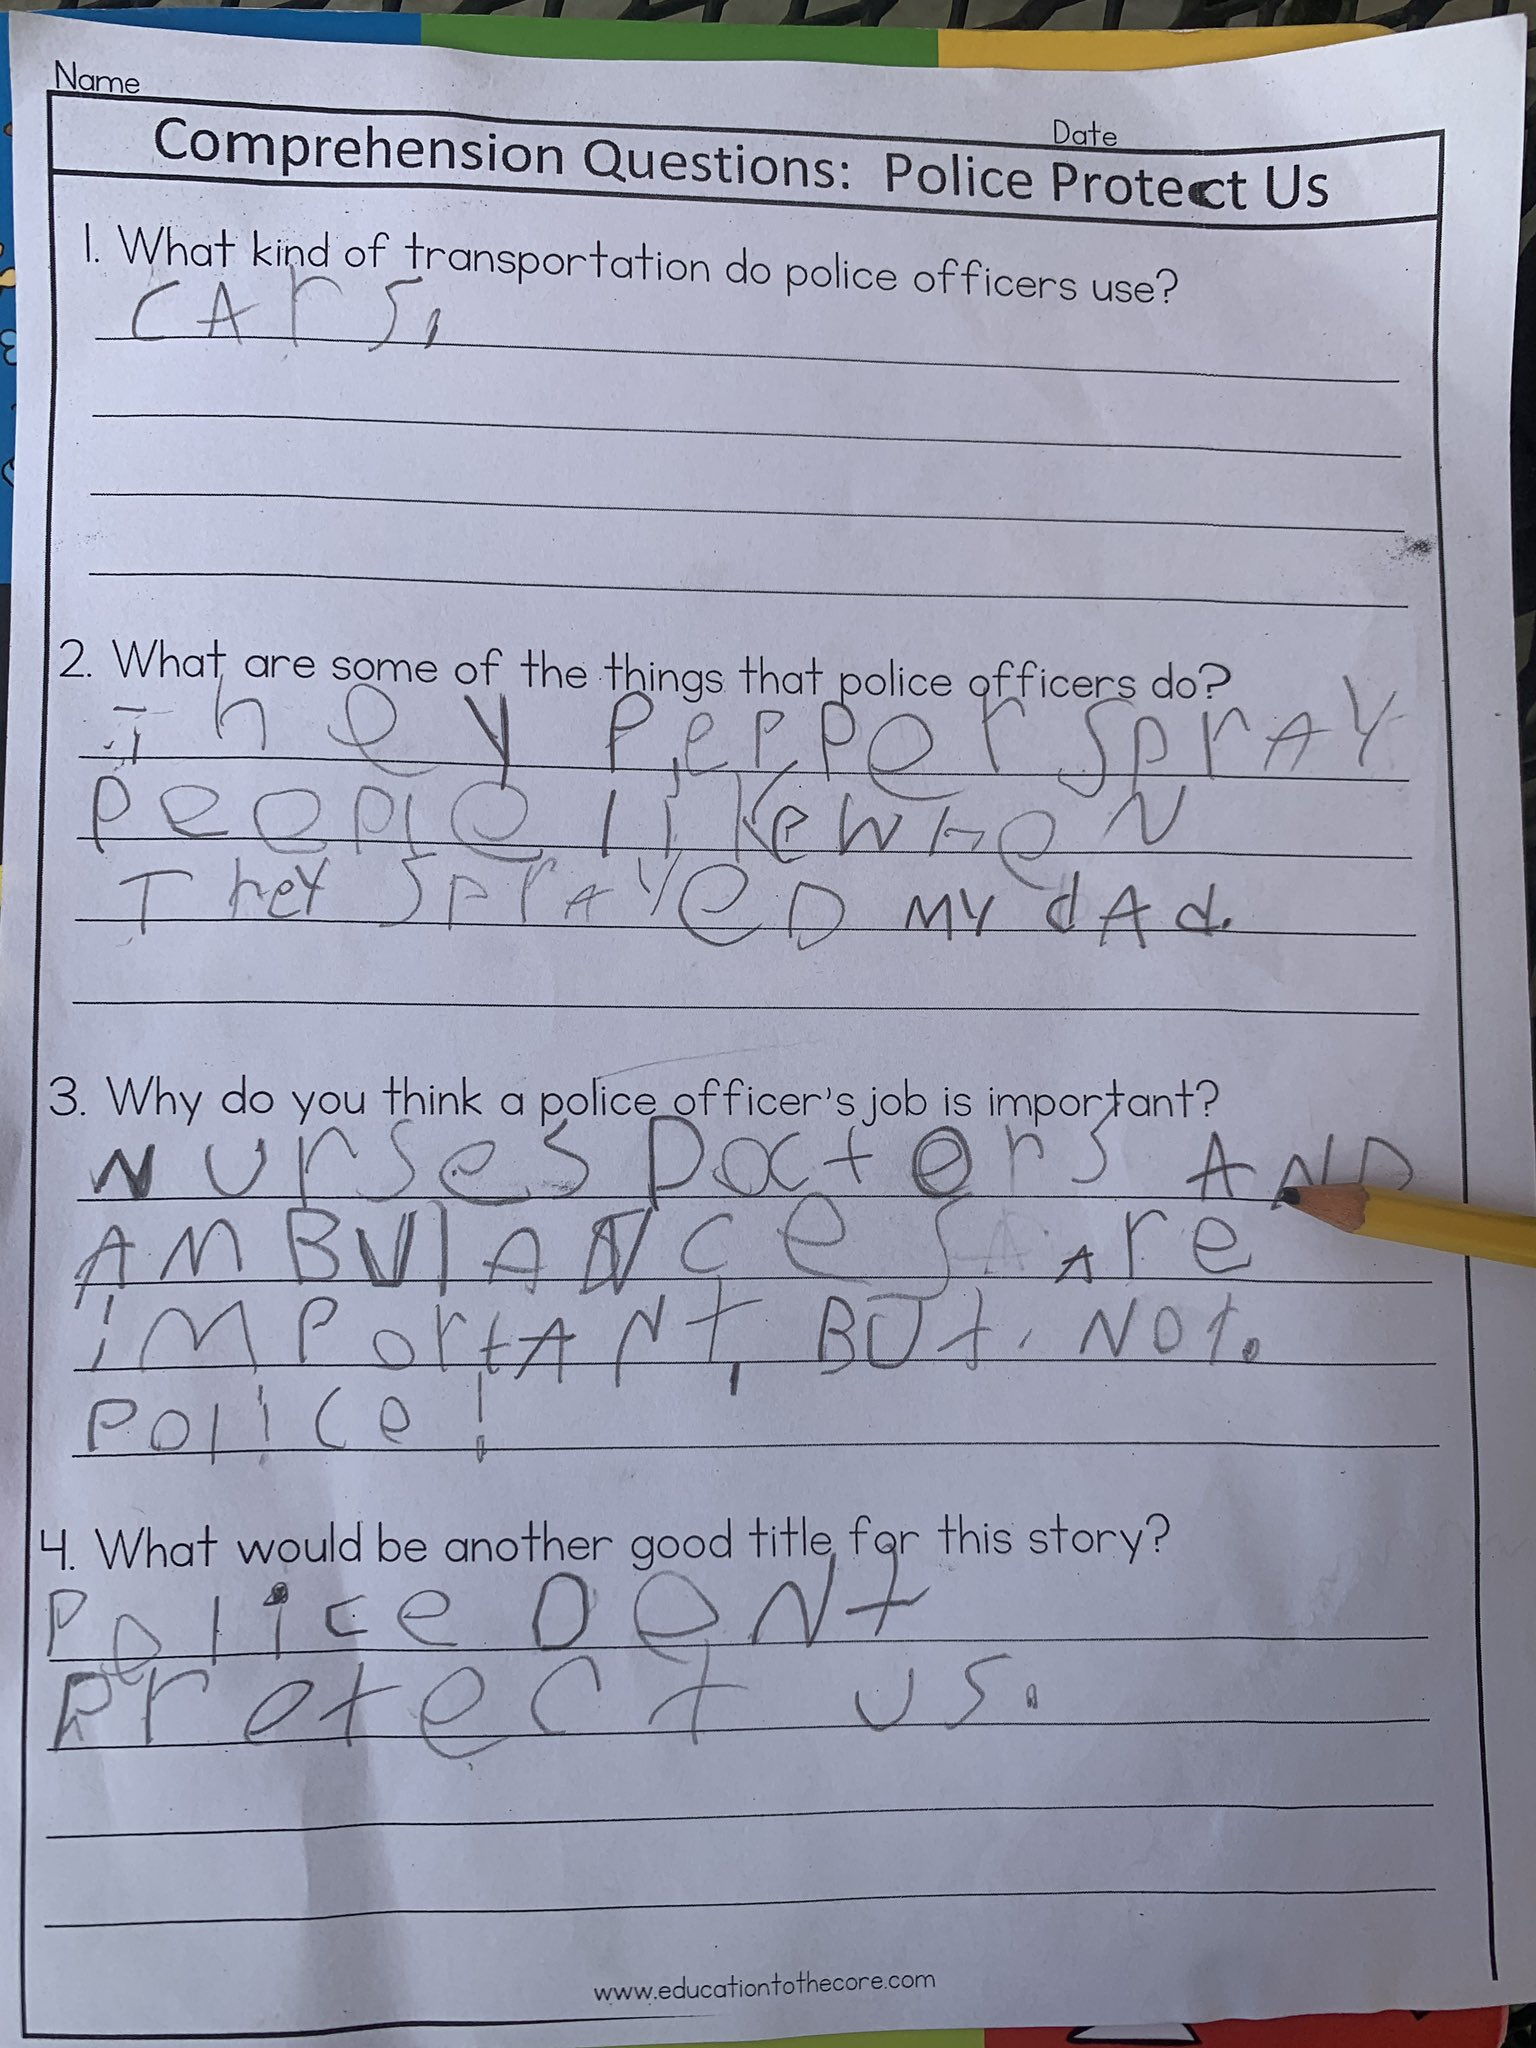 Name
Date
Comprehension Questions: Police Protect Us
1. What kind of transportation do police officers use?
cArs.
2. What are some of the things that police officers do?
They PepperSprAY
People like wheN
They SprAYeD MY dAd.
3. Why do you think a police officer's job is important?
NUrSeS Doctors AND
AMBUlANceS Are
iMPortANt, BUt. Not.
Police!
4. What would be another good title for this story?
Police DoNt
Protect US.
www.educationtothecore.com